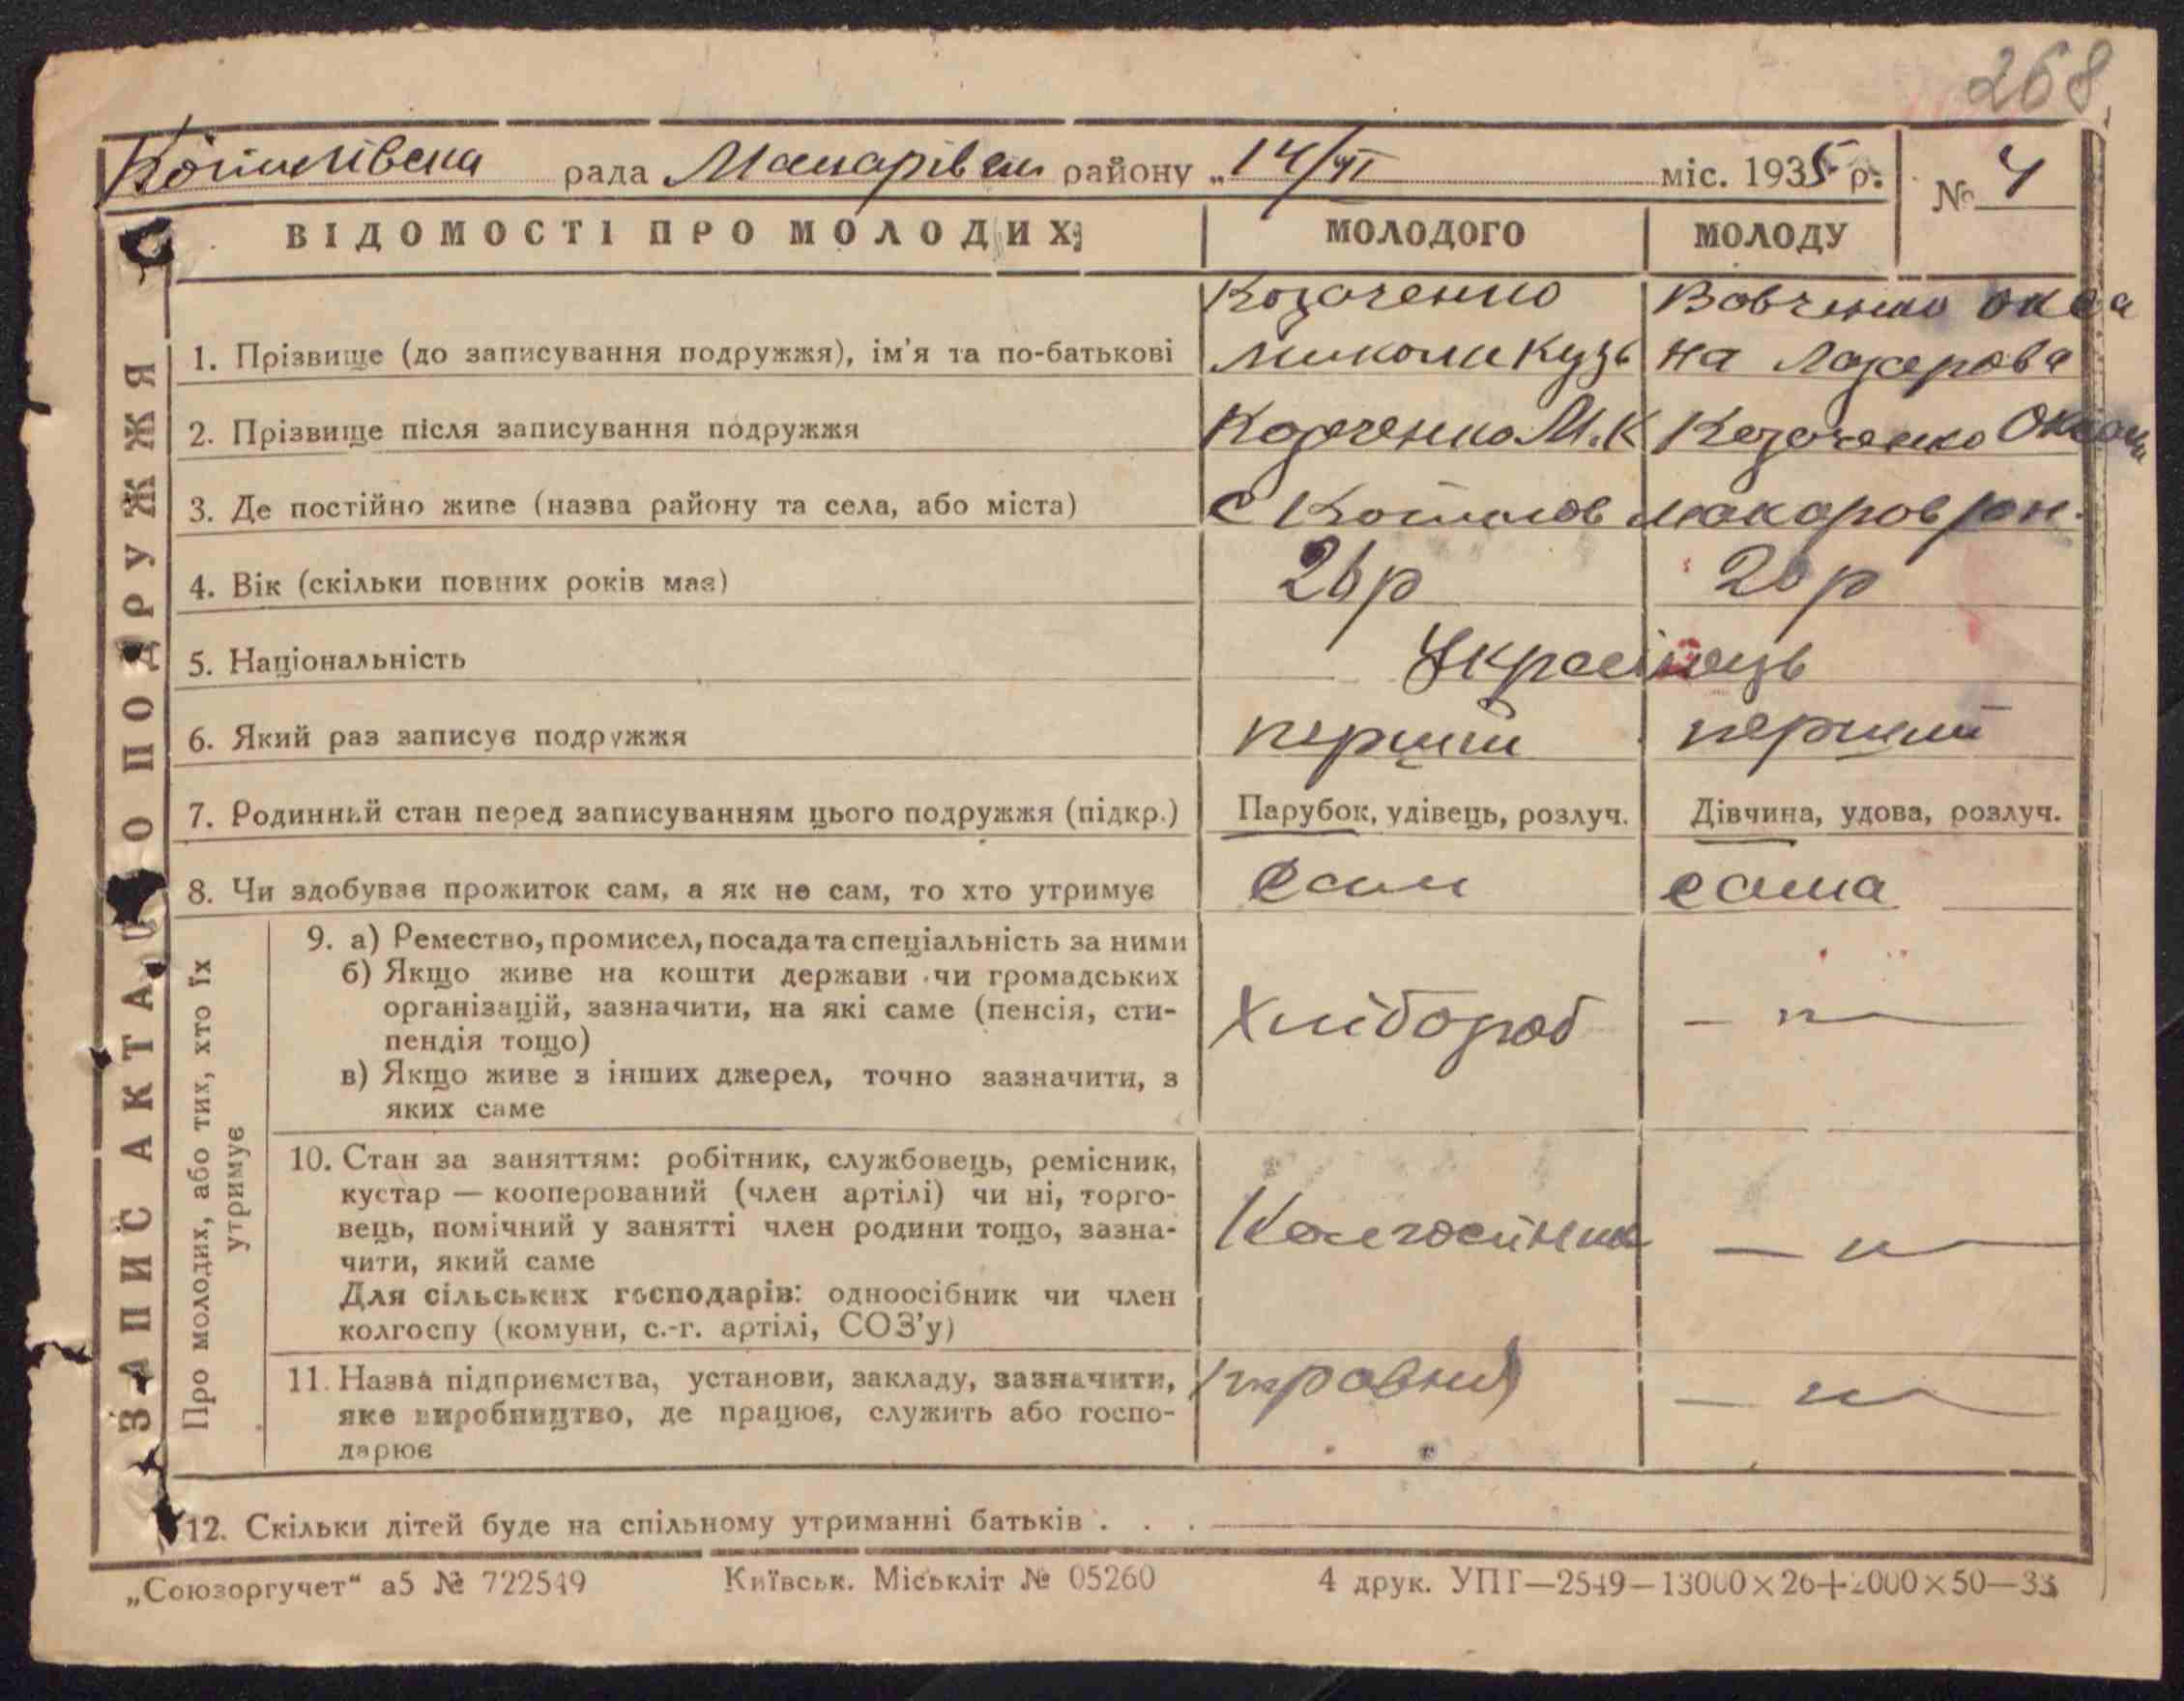 268
рада район​у „14/VI міс. 1935 р. № 4
ВІДОМОСТІ ПРО МОЛОДИХ МОЛОДОГО МОЛОДУ
Козаченко Вовченко Окса
1. Прізвище (до записування подружжя), ім'я та по-батькові Миколи Кузь на Лазарова
2. Прізвище після записування подружжя Козаченко М.К Козаченко Оксана
3. Де постійно живе (назва району та села, або міста) с макаров рон.
4. Вік (скільки повних років має) 26р 20р
5. Національність Українець
6. Який раз записує подружжя перший перший
7. Родинний стан перед записуванням цього подружжя (підкр.) Парубок, удівець, розлуч. Дівчина, удова, розлуч.
8. Чи здобуває прожиток сам, а як не сам, то хто утримує сам сама
9. а) Ремество, промисел, посада та спеціальність за ними
б) Якщо живе на кошти держави чи громадських
організацій, зазначити, на які саме (пенсія, сти-
пендія тощо)
Хлібороб — " —
в) Якщо живе з інших джерел, точно зазначити, з
яких саме
10. Стан за заняттям: робітник, службовець, ремісник,
кустар — кооперований (член артілі) чи ні, торго-
вець, помічний у занятті член родини тощо, зазна-
чити, який саме
Колгоспник — " —
Для сільських господарів: одноосібник чи член
колгоспу (комуни, с.-г. артілі, СОЗ'у)
11. Назва підприємства, установи, закладу, зазначити,
яке виробництво, де працює, служить або госпо-
дарює
— " —
12. Скільки дітей буде на спільному утриманні батьків . . .
ЗАПИС АКТА ПРО ПОДРУЖЖЯ
Про молодих, або тих, хто їх
утримує
„Союзоргучет“ а5 № 722549 Київськ. Міськліт № 05260 4 друк. УПГ—2549—13000×26+2000×50—33